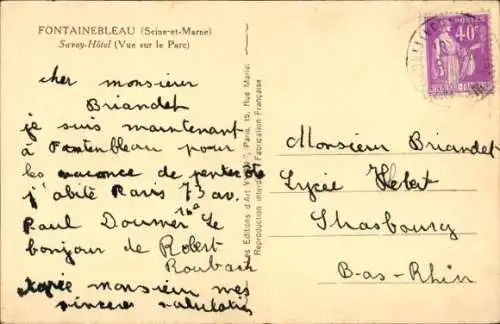 FONTAINEBLEAU (Seine-et-Marne)
Savoy-Hôtel (Vue sur le Parc)
cher monsieur
Briandet
je suis maintenant
à Fontenbleau pour
les vacance de pentecote
j'abite Paris 73 av.
Paul Doumer 16e Le
bonjour de Robert
Roubach
agrée monsieur mes
sincere salutations
Les Editions d'Art Paris, 15, Rue Martel
Reproduction interdite Fabrication Française
POSTES
40c
Monsieur Briandet
Lycée Kebert
Strasbourg
B-as-Rhin